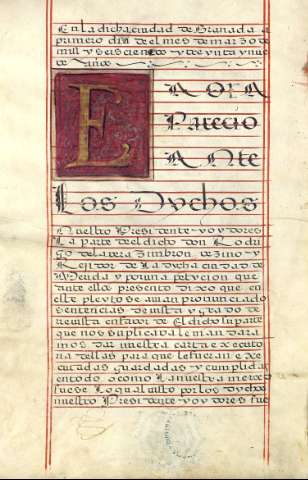 En la dicha ciudad de Granada a
primero dia de el mes de março de
mill y seiscientos y treynta y nuebe
años
E
A ORA
Parecio
Ante
Los Dychos
Nuestro Presidente y oydores
La parte de el dicho don Rodri
go de la
Regidor de la dicha ciudad de
Merida y por vna peticion que
ante ella presento dixo que en
este pleyto se auian pronunciado
sentencias de vista y grado de
reuista en fabor de el dicho su parte
que nos suplicaba le mandara
mos dar nuestra carta executo
ria dellas para que le fueran exe
cutadas guardadas y cumplidas
en todo o como la nuestra merced
fuese lo qual visto por los dychos
nuestro Presidente y oydores fue